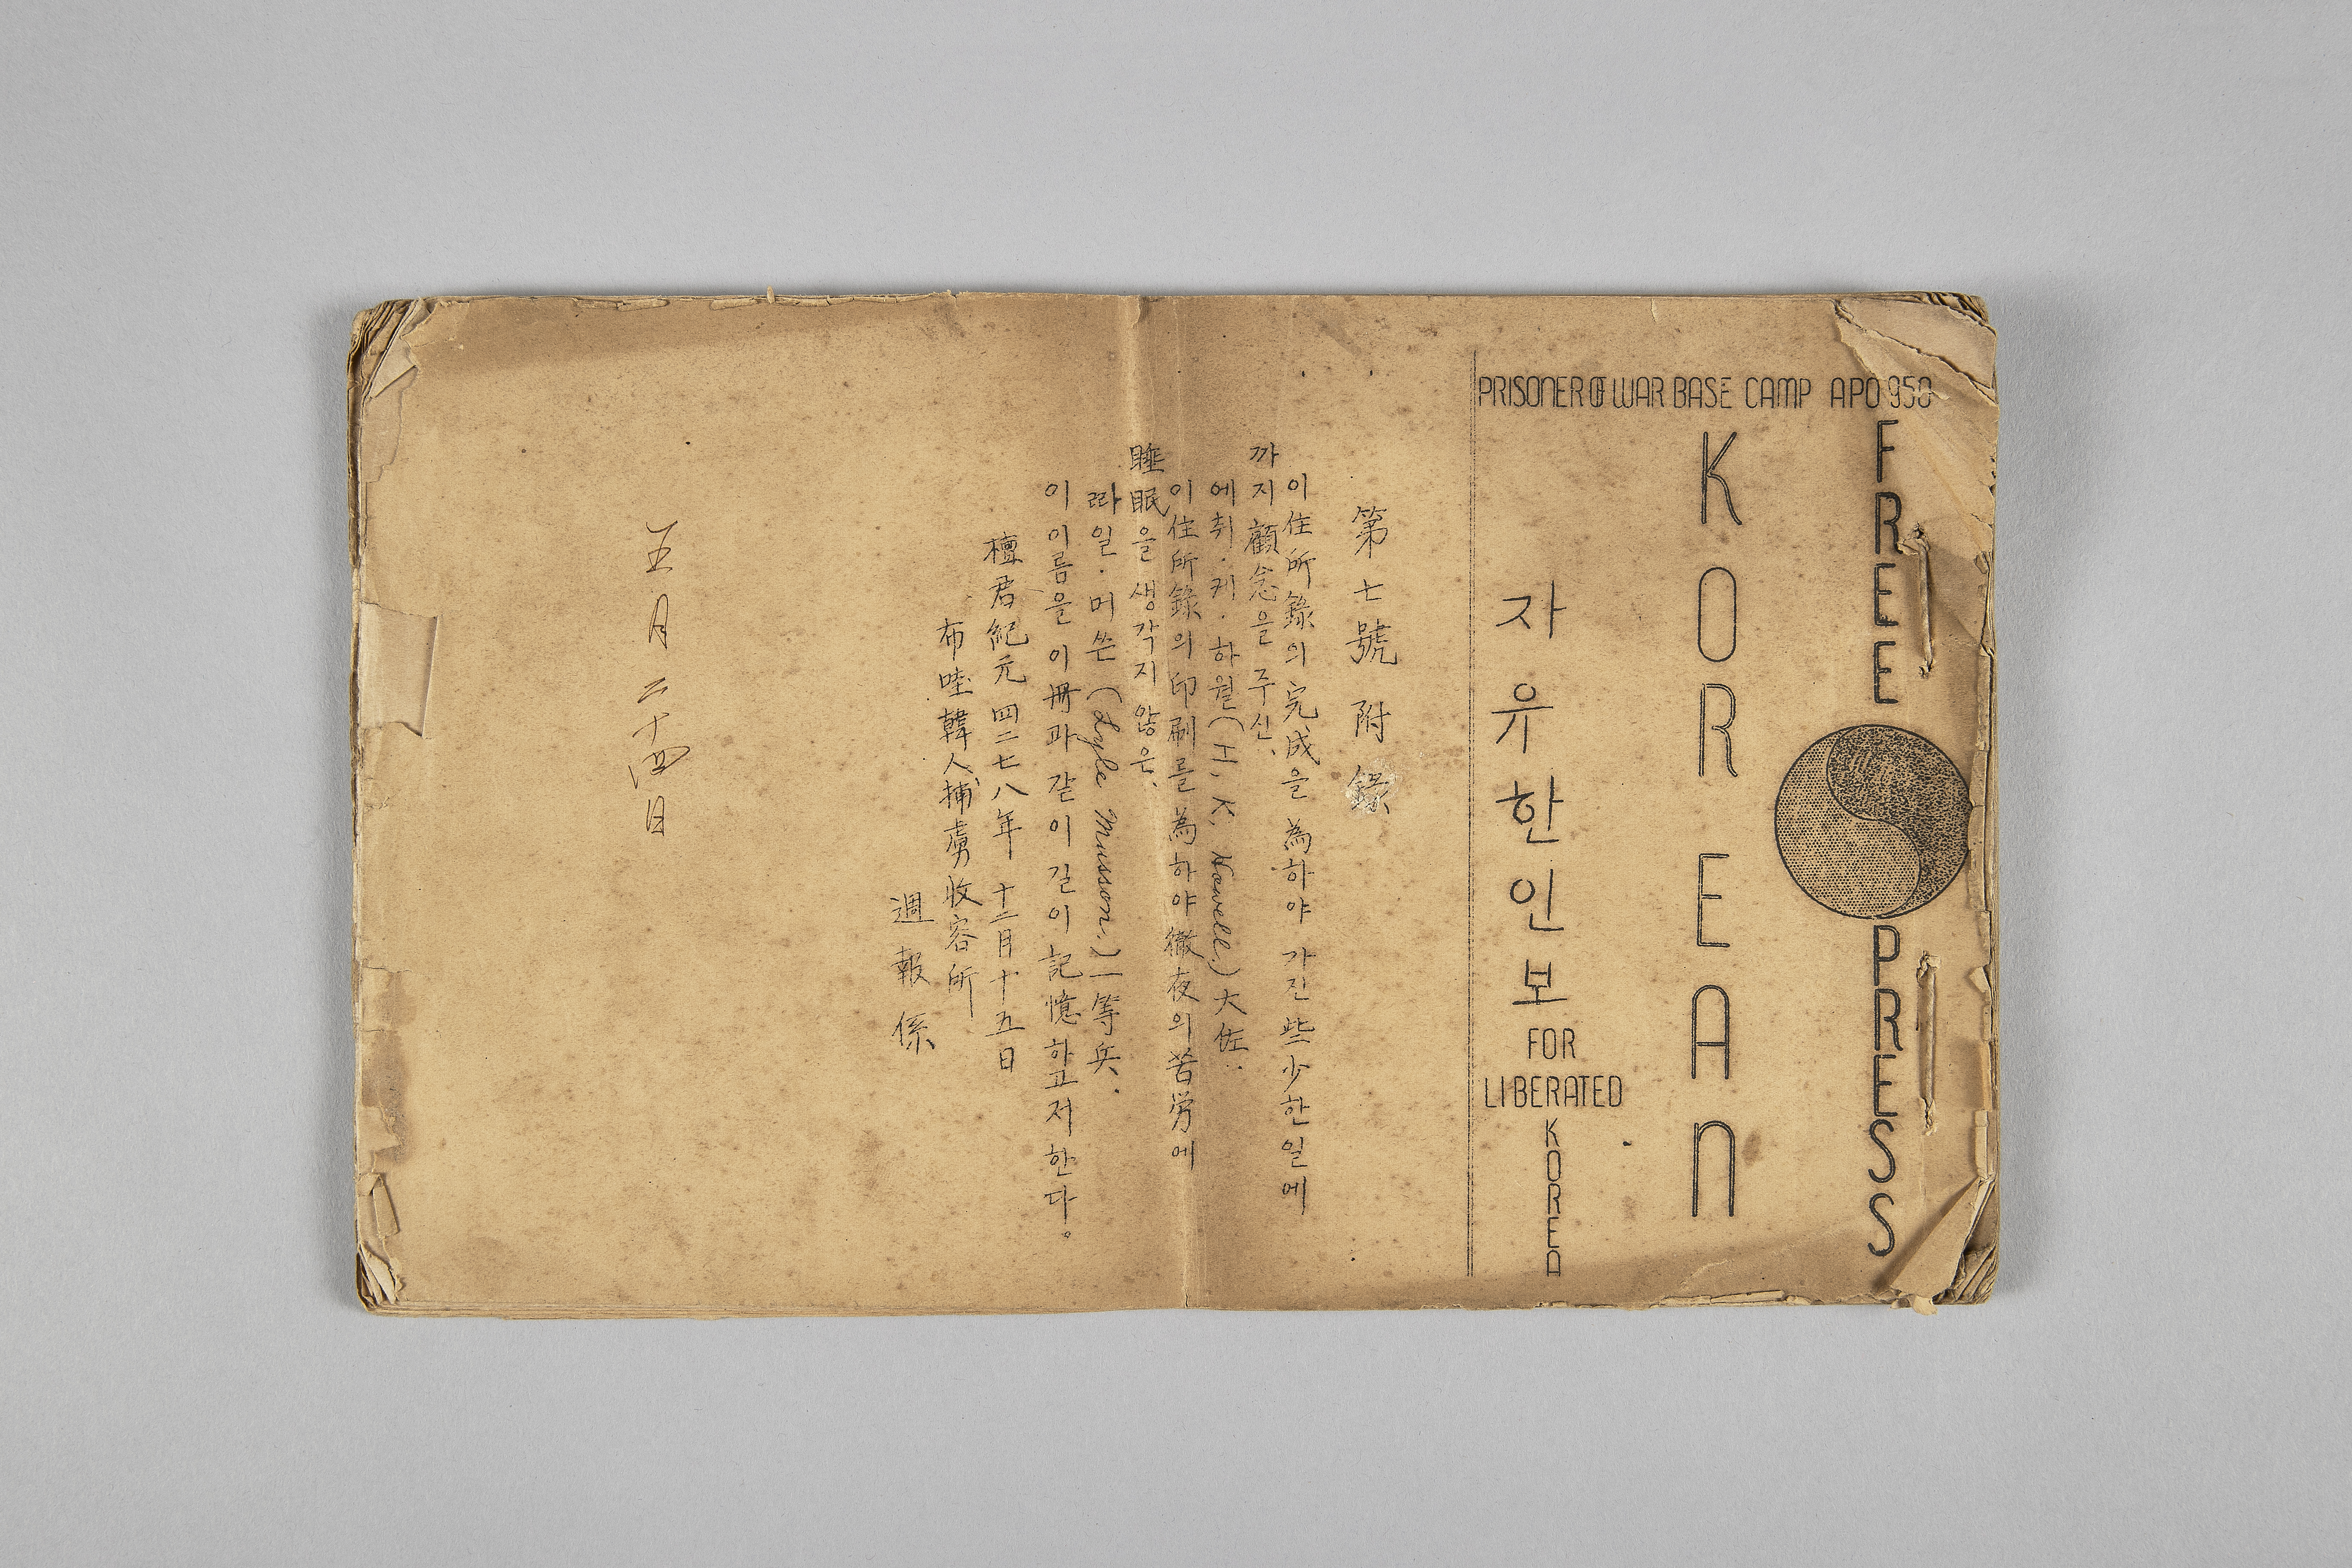 FREE PRESS
KOREAN
PRISONER OF WAR BASE CAMP APO 950
자유한인보
FOR
LIBERATED
KOREA
第七號 附錄
이 住所錄의 完成을 為하야 가진 些少한 일에
까지 顧念을 주신、
에취·키·하웰(H. K. Howell.) 大佐.
이 住所錄의 印刷를 為하야 徹夜의 苦労에
睡眠을 생각지 않은、
라일·머쓴(Lyle Musson.) 一等兵.
이 이름을 이 冊과 같이 길이 記憶하고저 한다。
檀君紀元 四二七八年 十二月 十五日
布哇韓人捕虜收容所
週報係
五月二十四日